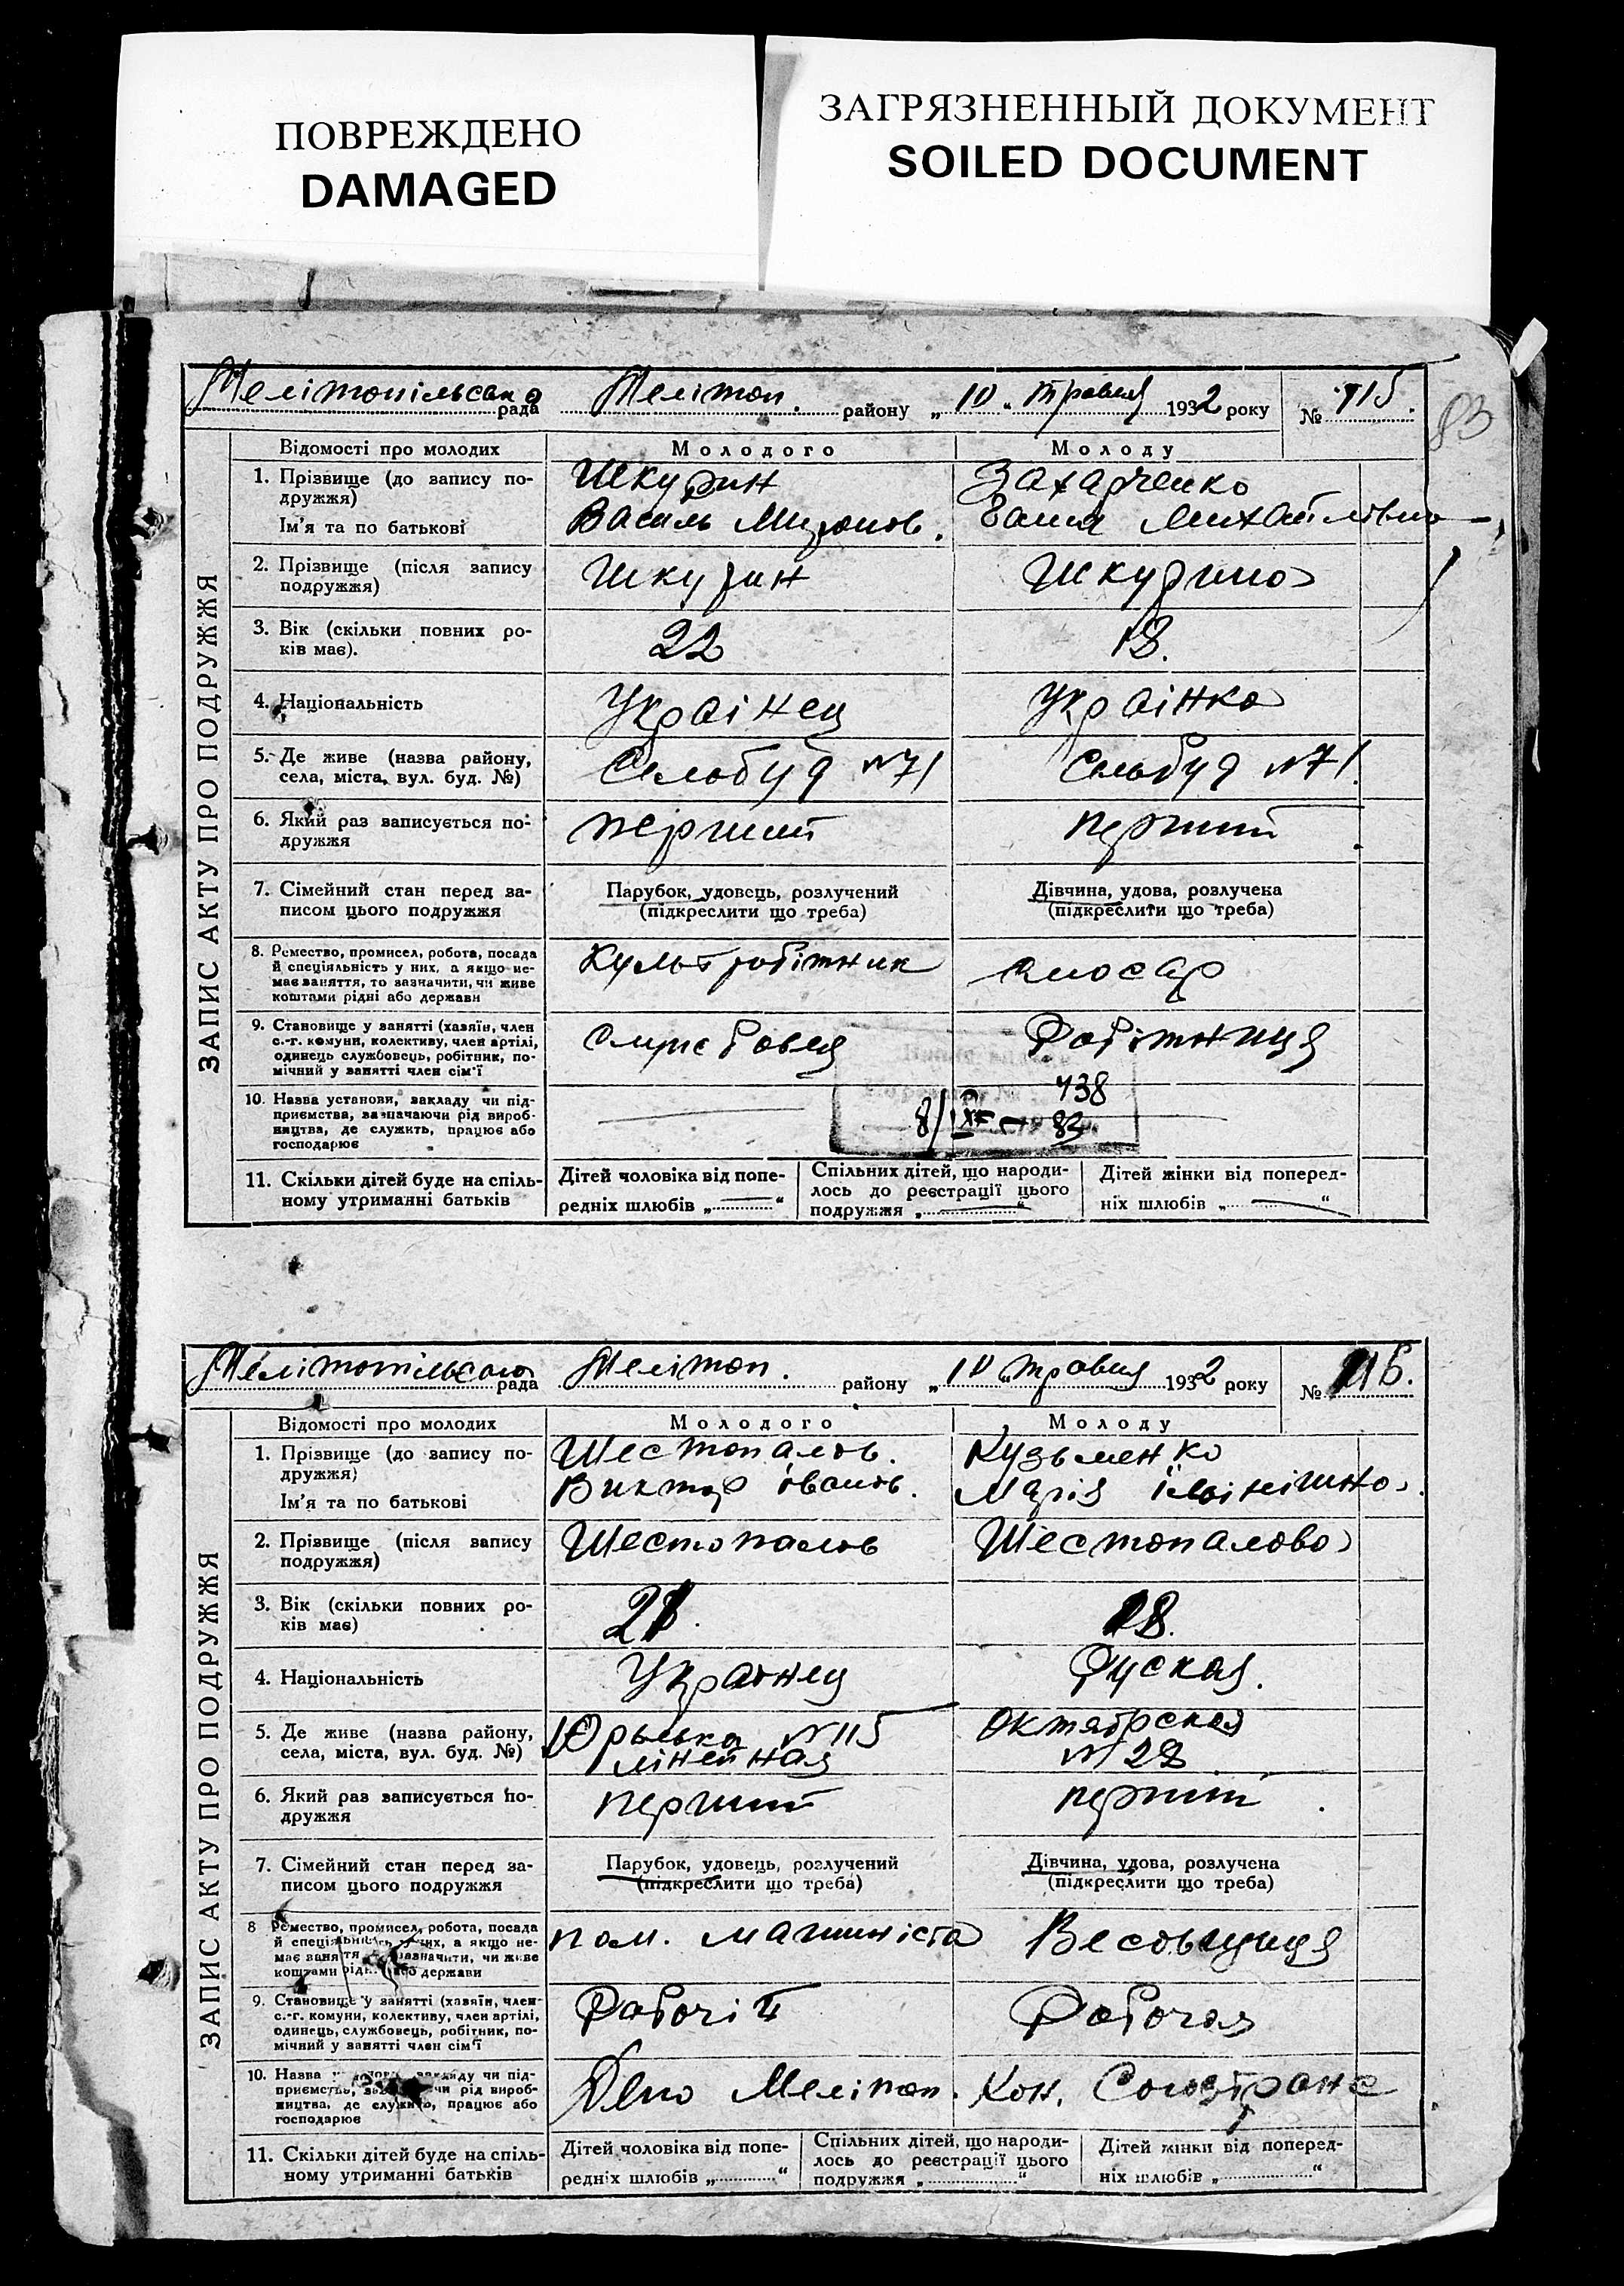 ПОВРЕЖДЕНО
DAMAGED
ЗАГРЯЗНЕННЫЙ ДОКУМЕНТ
SOILED DOCUMENT
83
ЗАПИС АКТУ ПРО ПОДРУЖЖЯ
Мелітопільська рада Мелітоп. району „10" травня 1932 року № 115.
Відомості про молодих Молодого Молоду
1. Прізвище (до запису по- Шкурин Захарченко
дружжя)
Ім'я та по батькові Василь Миронов. Михайлівна
2. Прізвище (після запису Шкурин Шкурина
подружжя)
3. Вік (скільки повних ро- 22 18.
ків має).
4. Національність Українец Українка
5. Де живе (назва району, Сельбуд №71 Сельбуд №71.
села, міста, вул. буд. №)
6. Який раз записується по- перший перший
дружжя
7. Сімейний стан перед за- Парубок, удовець, розлучений Дівчина, удова, розлучена
писом цього подружжя (підкреслити що треба) (підкреслити що треба)
8. Ремество, промисел, робота, посада Культробітник слюсар
й спеціяльність у них, а якщо не-
має заняття, то зазначити, чи живе
коштами рідні або держави
9. Становище у занятті (хазяїн, член Службовец Робітниця
с.-г. комуни, колективу, член артілі,
одинець службовець, робітник, по-
мічний у занятті член сім'ї
10. Назва установи, закладу чи під-
приємства, зазначаючи рід вироб-
ництва, де служить, працює або
господарює
738
8/IX 83
11. Скільки дітей буде на спіль- Дітей чоловіка від попе- Спільних дітей, що народи- Дітей жінки від поперед-
ному утриманні батьків редніх шлюбів „ — “ лось до реєстрації цього ніх шлюбів „ — “
подружжя „ — “
ЗАПИС АКТУ ПРО ПОДРУЖЖЯ
Мелітопільська рада Мелітоп. району „10" травня 1932 року № 116.
Відомості про молодих Молодого Молоду
1. Прізвище (до запису по- Шестопалов. Кузьменко
дружжя)
Ім'я та по батькові Виктор Іванов. Марія
2. Прізвище (після запису Шестопалов Шестопалова
подружжя)
3. Вік (скільки повних ро- 18.
ків має)
4. Національність Українец Руская.
5. Де живе (назва району, №115 Октябрская
села, міста, вул. буд. №) лінейная №28
6. Який раз записується по- перший перший
дружжя
7. Сімейний стан перед за- Парубок, удовець, розлучений Дівчина, удова, розлучена
писом цього подружжя (підкреслити що треба) (підкреслити що треба)
8 Ремество, промисел, робота, посада пом. машиніста Весовщиця
й спеціяльність у них, а якщо не-
має заняття, то зазначити, чи живе
коштами рідні або держави
9. Становище у занятті (хазяїн, член Робочій Робочая
с.-г. комуни, колективу, член артілі,
одинець, службовець, робітник, по-
мічний у занятті член сім'ї
10. Назва установи, закладу чи під- Депо Мелітоп. Кон. Союзтранс
приємства, зазначаючи рід вироб-
ництва, де служить, працює або
господарює
11. Скільки дітей буде на спіль- Дітей чоловіка від попе- Спільних дітей, що народи- Дітей жінки від поперед-
ному утриманні батьків редніх шлюбів „ “ лось до реєстрації цього ніх шлюбів „ “
подружжя „ “